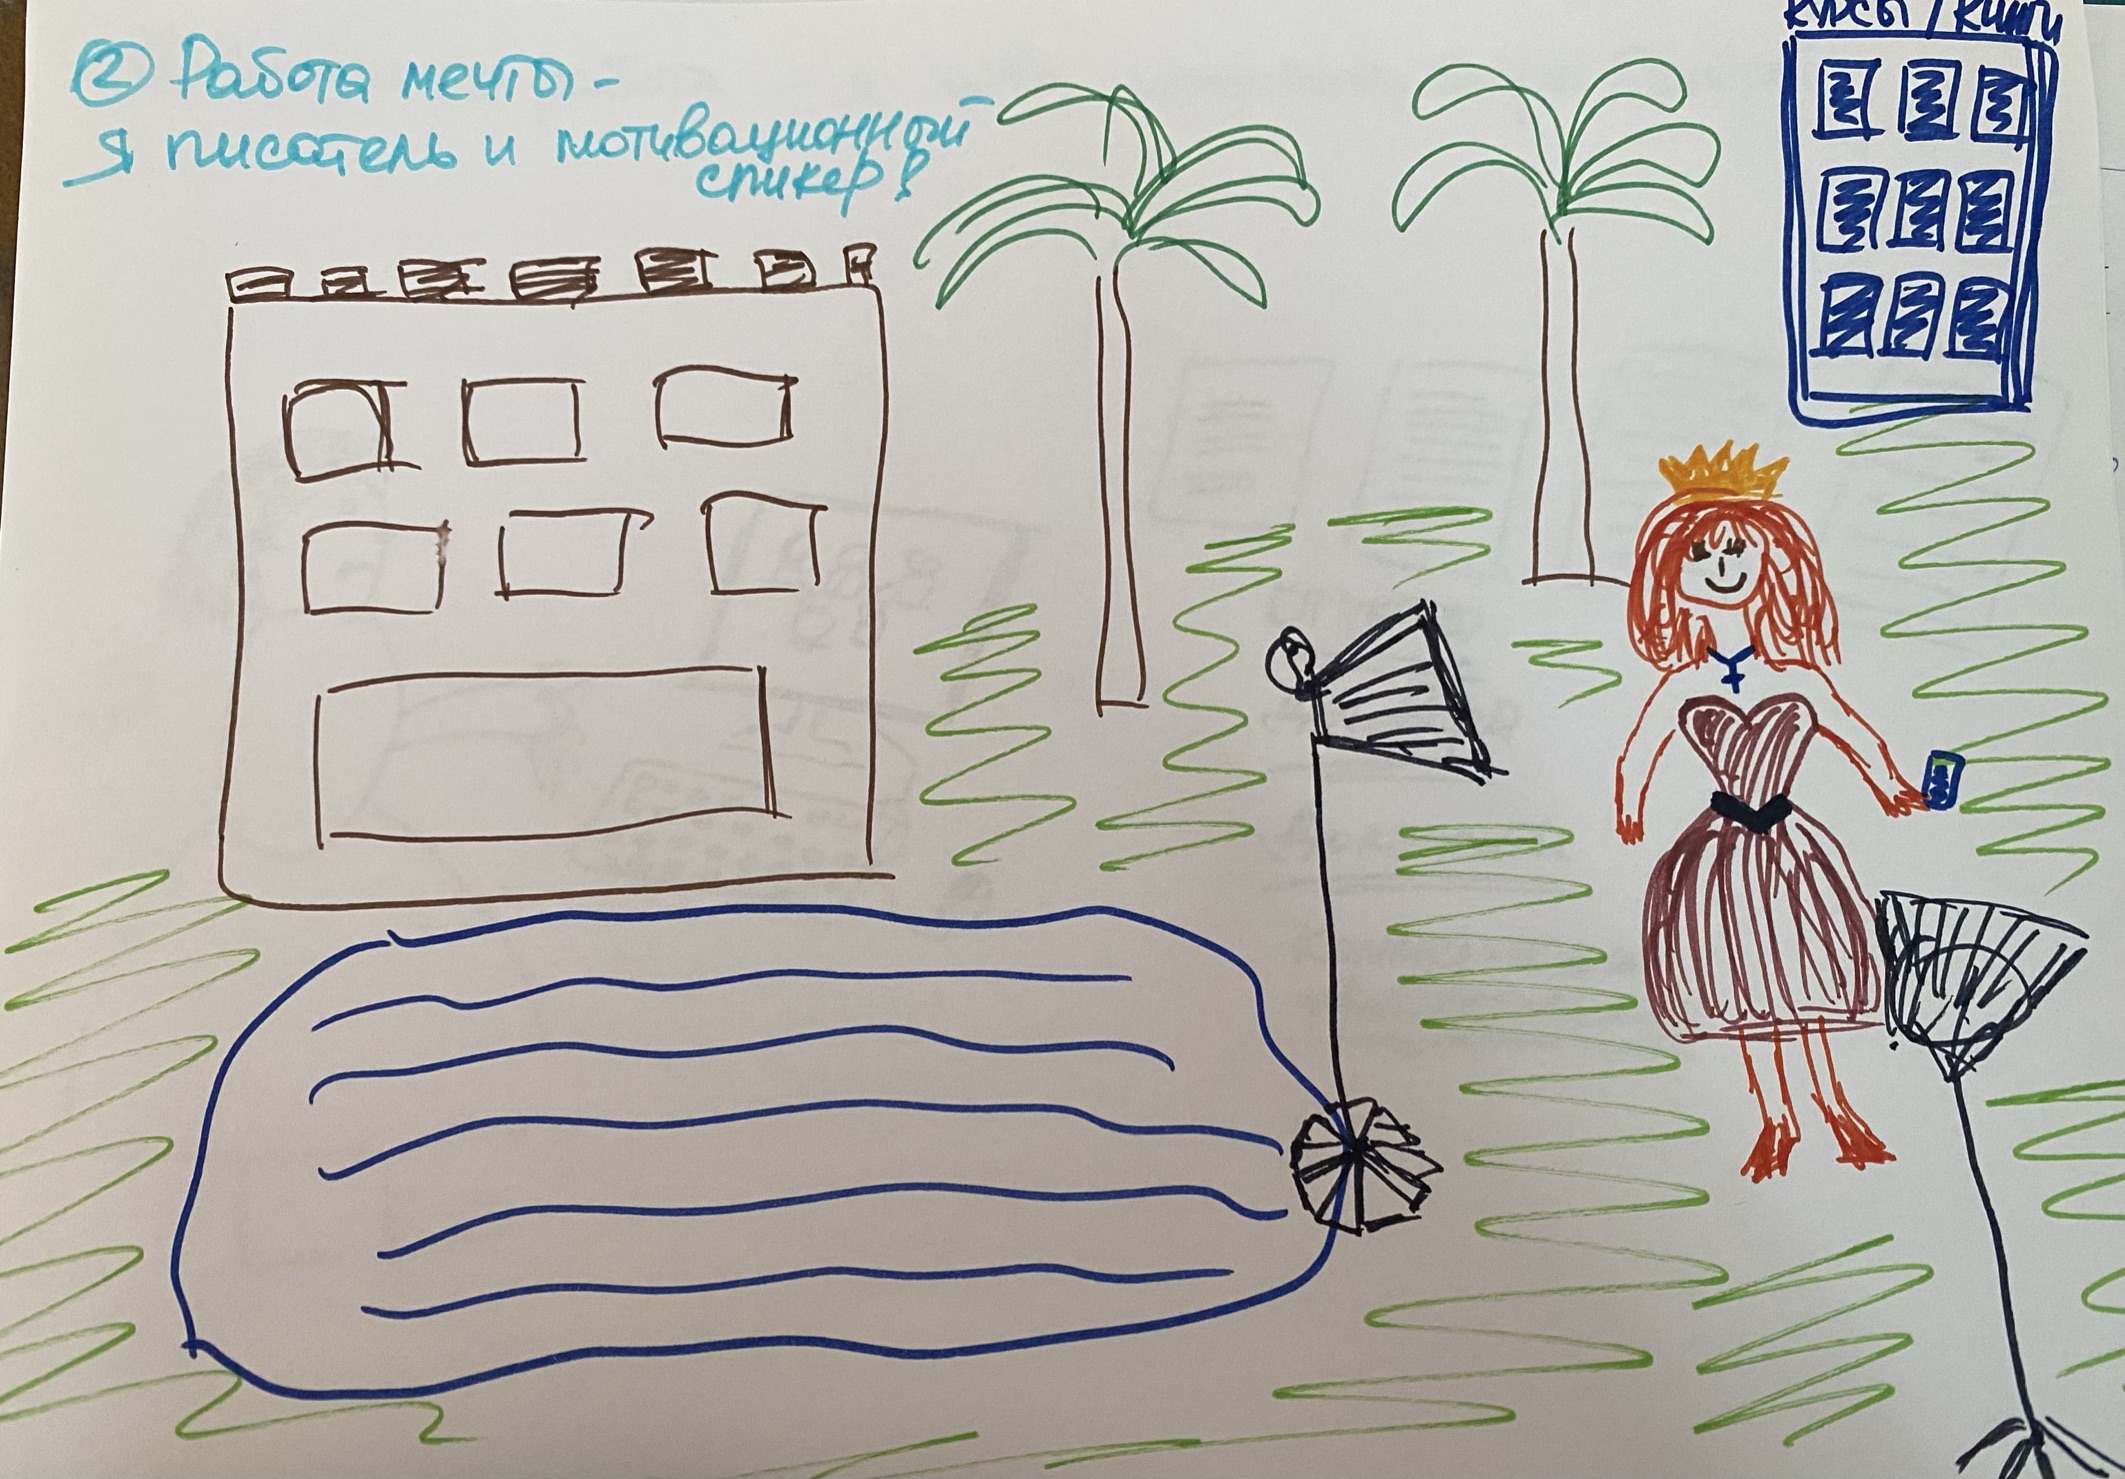 ② Работа мечты -
я писатель и мотивационный
спикер!
курсы / книги